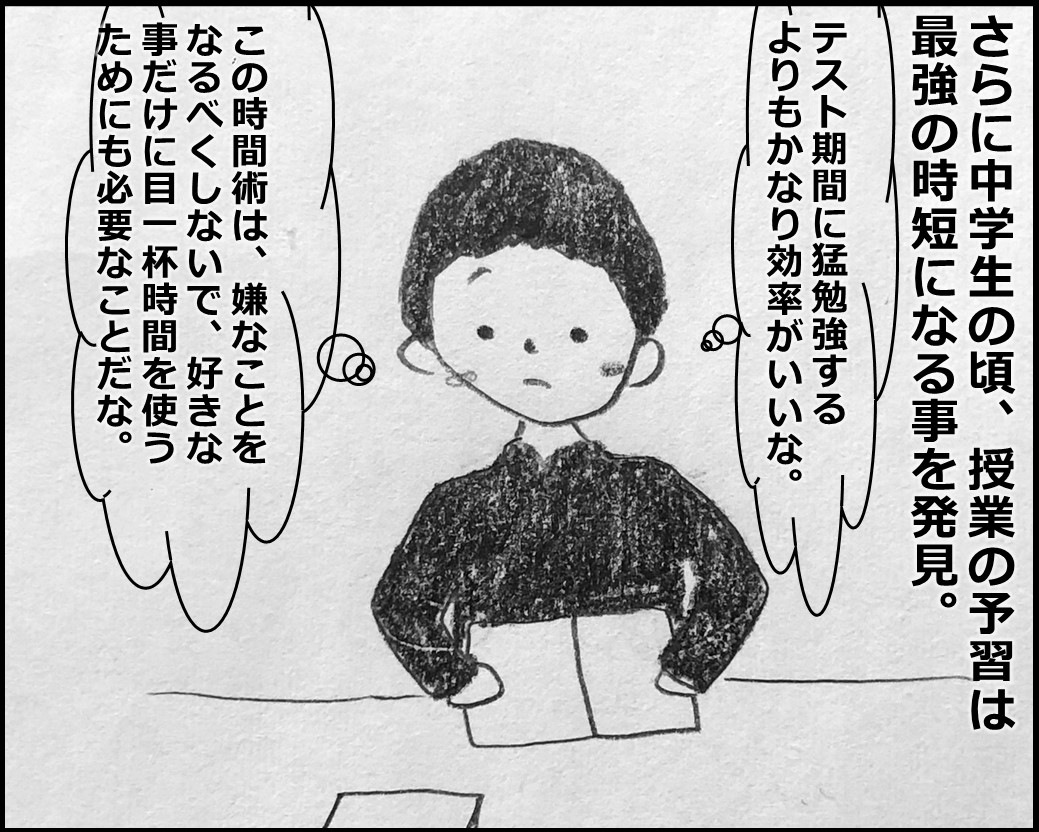 さらに中学生の頃、授業の予習は
最強の時短になる事を発見。
テスト期間に猛勉強する
よりもかなり効率がいいな。
この時間術は、嫌なことを
なるべくしないで、好きな
事だけに目一杯時間を使う
ためにも必要なことだな。